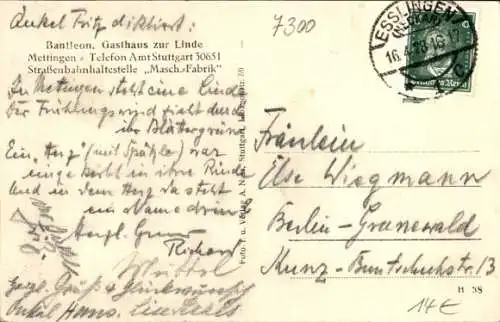 Onkel Fritz diktiert:
Bantleon, Gasthaus zur Linde
Mettingen - Telefon Amt Stuttgart 30651
Straßenbahnhaltestelle „Masch.-Fabrik"
In Metingen steht eine Linde
Der Frühlingswind zieht durch
ihr Blättergrün
Ein „Herz" (mit Spätzle) war
eingekerbt in ihre Rinde
und in dem Herz da steht
ein Name drin
Hergl. Gruss
Richard
Herzl. Grüße &
Onkel Hans.
Foto- u. Verlag A. Stuttgart,
7300
ESSLINGEN
(NECKAR)
16.4.28.16-17
Deutsches Reich
Fräulein
Else Wiegmann
Berlin-Grunewald
Kunz-Buntschuhstr. 13
H 38
14€